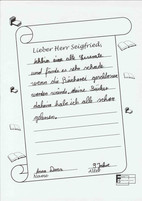 Lieber Herr Seigfried,
ich bin eine alte Leseratte
und fände es sehr schade
wenn die Bücherei geschlossen
werden würde, deine Bücher
daheim habe ich alle schon
gelesen.
9 Jahre
Name
Alter